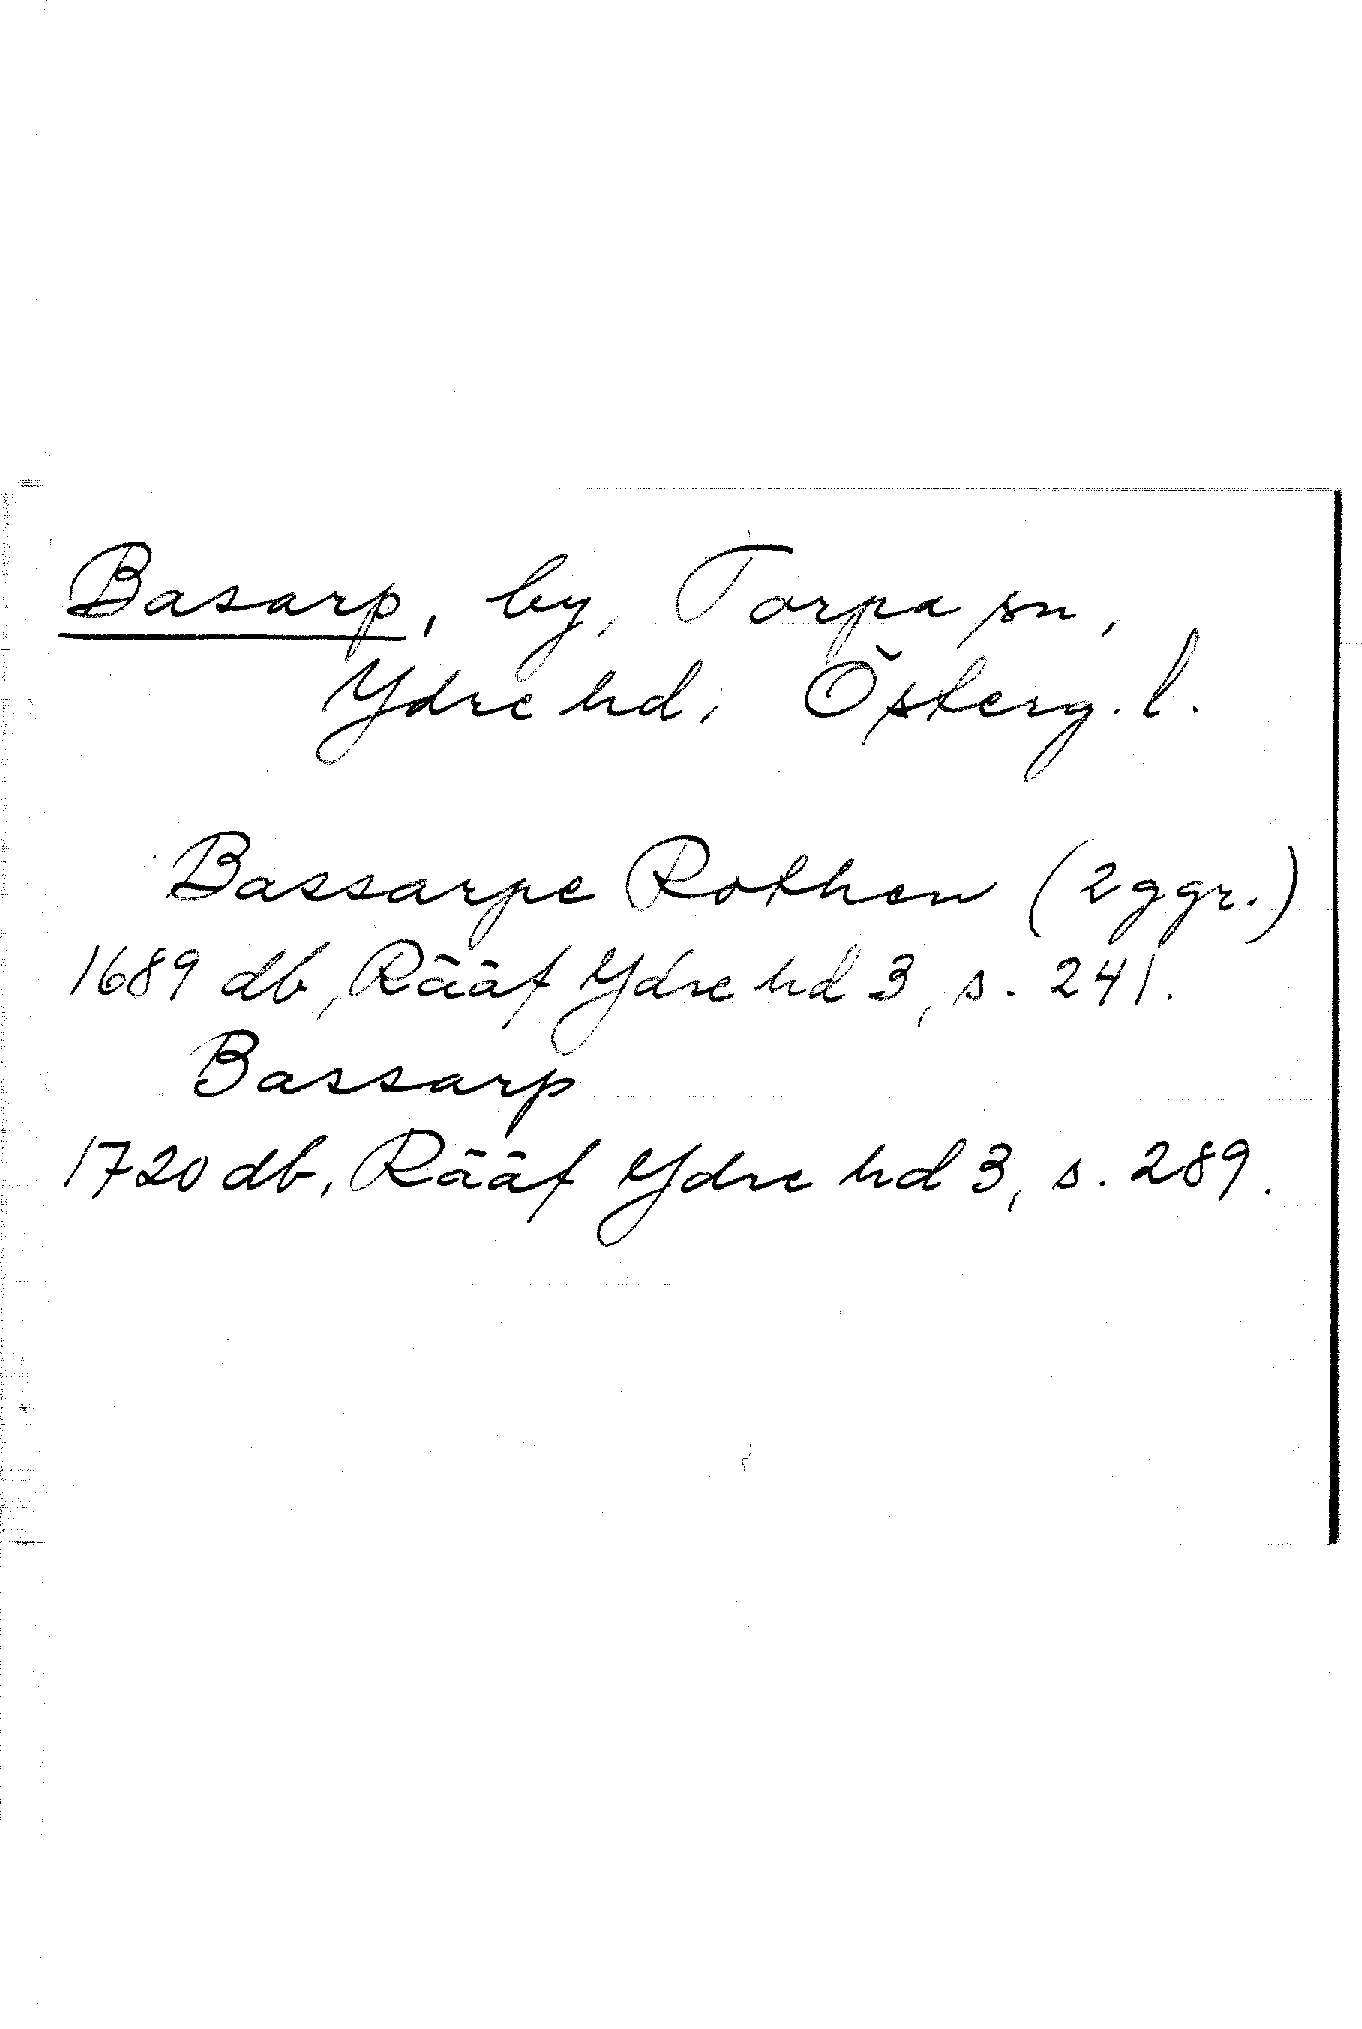 Basarp, by, Torpa sn,
Ydre hd, Österg. l.
Bassarpe Rothen (2 ggr.)
1689 db, Rääf Ydre hd 3, s. 241.
Bassarp
1720 db, Rääf Ydre hd 3, s. 289.